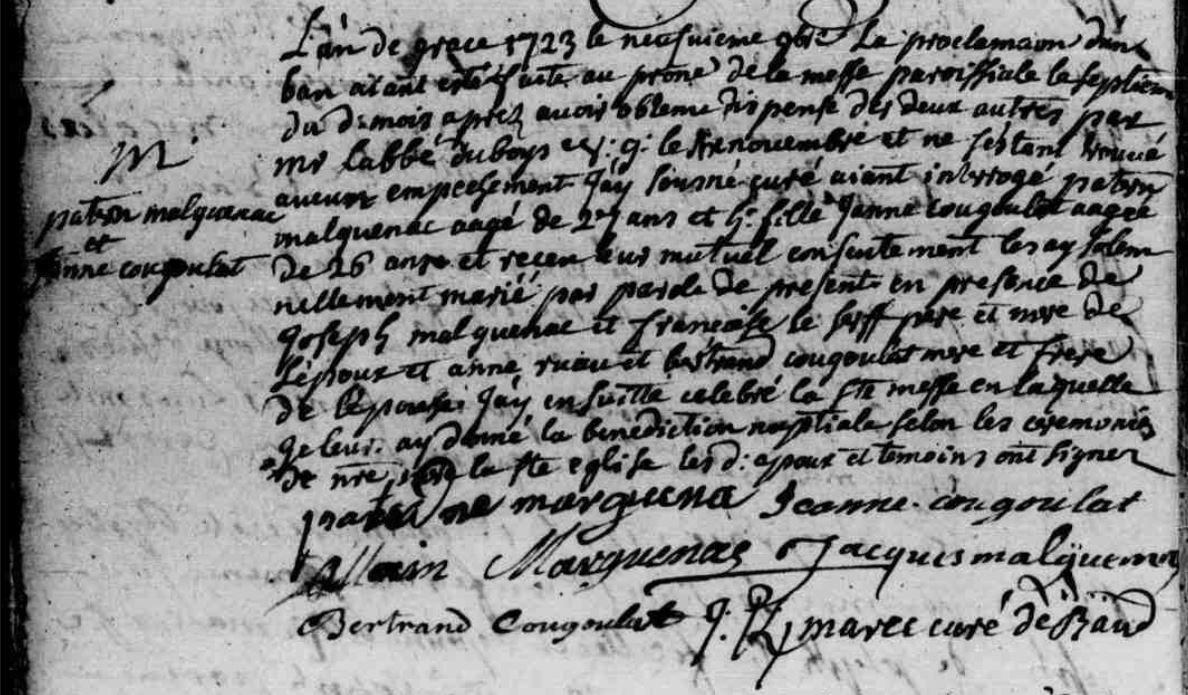 M
patern malquenac
et
janne cougoulat
L'an de grace 1723 le neufuieme 9bre La proclamaon d'un
ban aiant esté faite au prone de la messe paroissiale le septieme
du d: mois aprez avoir obtenu dispense des deux autres par
mr l'abbé duboys g: le novembre et ne s'estant trouvé
aucun empeschement J'ay sousné curé aiant interrogé patern
malquenac aagé de 27 ans et h: fille Janne cougoulat aagée
de 26 ans et receu leur mutuel consentement les ay solem
nellement marié par parole de present en presence de
Joseph malquenac et francoise le serff pere et mere de
L'epoux et anne ruau et bertrand cougoulat mere et frere
de l'epouse; J'ay ensuitte celebré la ste messe en laquelle
je leur ay donné la benediction nuptiale selon les ceremonies
de nre mere la ste eglise les d: epoux et temoins ont signer
paterne marguena Jeanne cougoulat
allain Marguenac Jacques malquenac
Bertrand Cougoulat J. marec curé de Baud